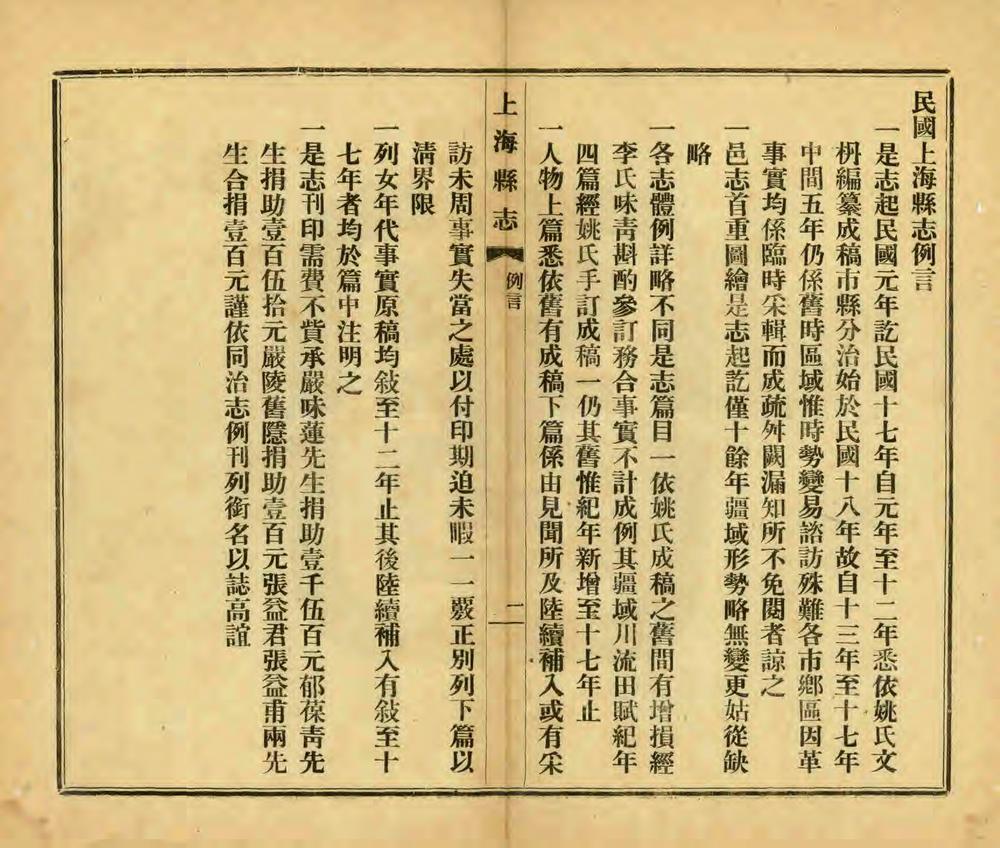 民國上海縣志例言
一是志起民國元年訖民國十七年自元年至十二年悉依姚氏文
枬編纂成稿市縣分治始於民國十八年故自十三年至十七年
中間五年仍係舊時區域惟時勢變易諮訪殊難各市鄉區因革
事實均係臨時采輯而成疏舛闕漏知所不免閱者諒之
一邑志首重圖繪是志起訖僅十餘年疆域形勢略無變更姑從缺
略
一各志體例詳略不同是志篇目一依姚氏成稿之舊間有增損經
李氏味靑斟酌參訂務合事實不計成例其疆域川流田賦紀年
四篇經姚氏手訂成稿一仍其舊惟紀年新增至十七年止
一人物上篇悉依舊有成稿下篇係由見聞所及陸續補入或有采
上海縣志
例言
二
訪未周事實失當之處以付印期迫未暇一一覈正別列下篇以
淸界限
一列女年代事實原稿均敍至十二年止其後陸續補入有敍至十
七年者均於篇中注明之
一是志刊印需費不貲承嚴味蓮先生捐助壹千伍百元郁葆靑先
生捐助壹百伍拾元嚴陵舊隱捐助壹百元張益君張益甫兩先
生合捐壹百元謹依同治志例刊列銜名以誌高誼